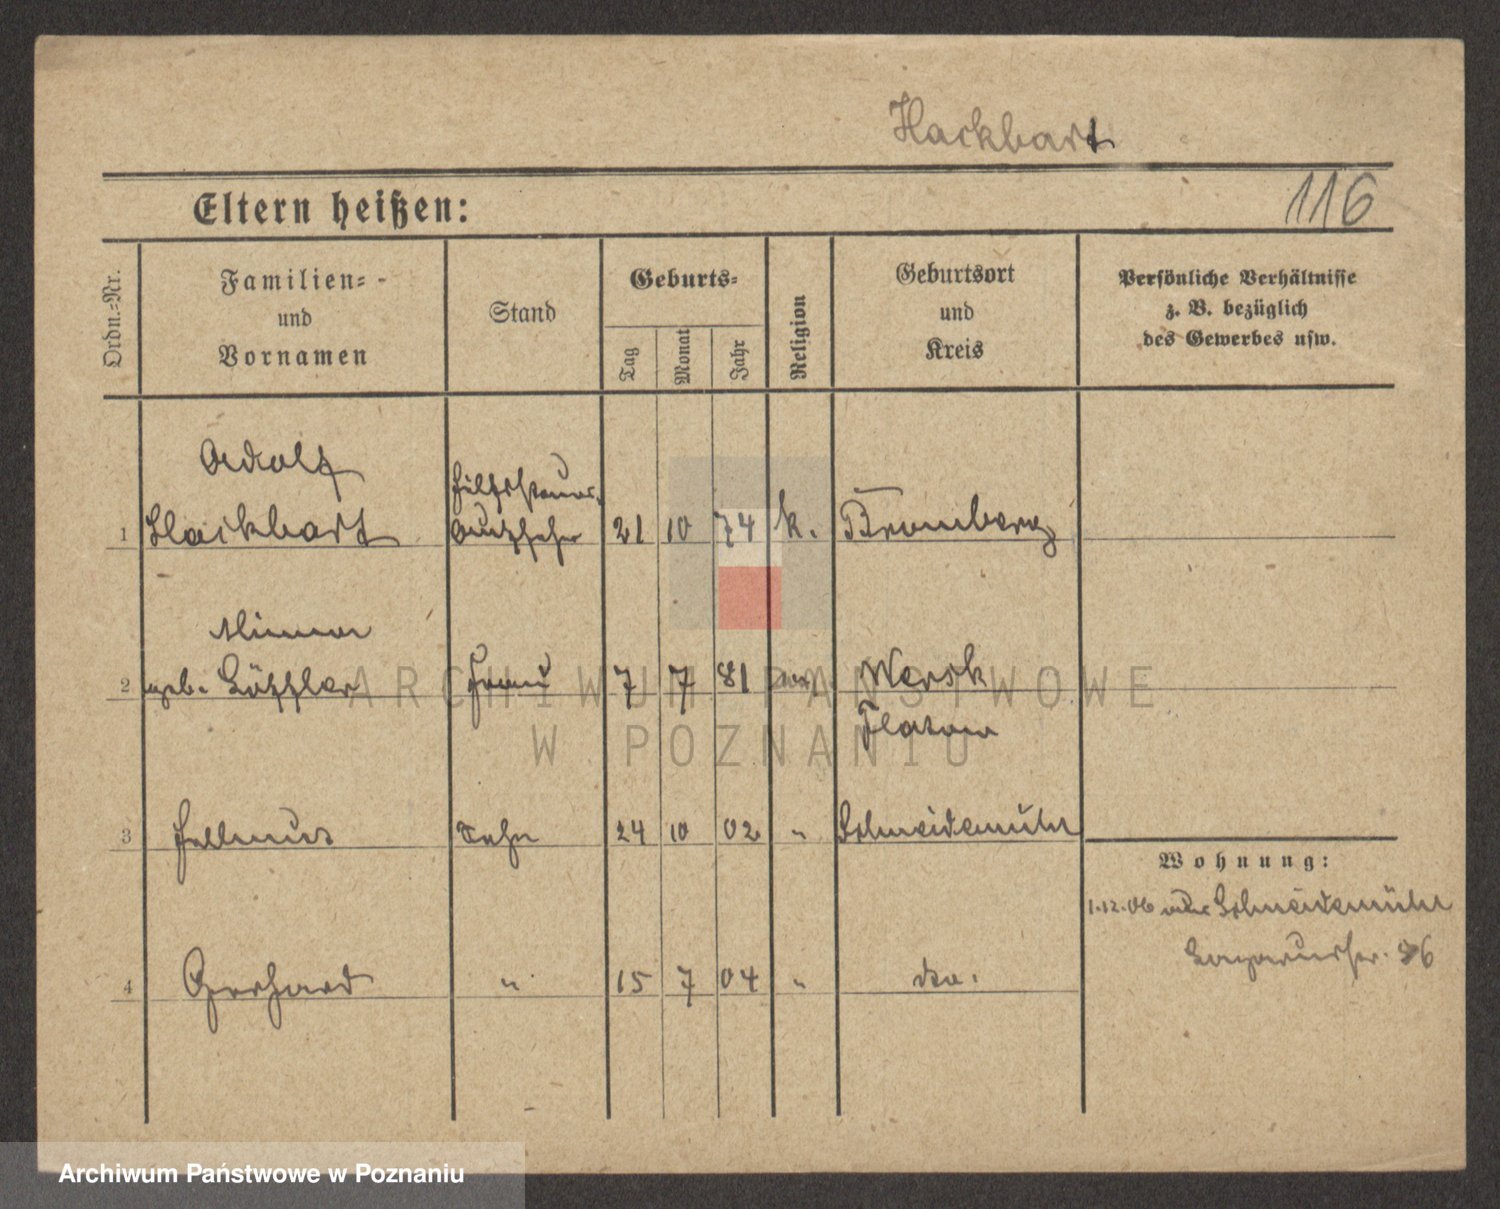 Hackbart
Eltern heißen:
116
Ordn.=Nr.
Familien= -
und
Vornamen
Stand
Geburts=
Tag
Monat
Jahr
Religion
Geburtsort
und
Kreis
Persönliche Verhältnisse
z. B. bezüglich
des Gewerbes usw.
Adolf
Hilfssteuer-
1 Hackbart Aufseher 21 10 74 k. Bromberg
Minna
2 geb. Löffler Frau 7 7 81 ev. Wersk
Flatow
3 Hellmut Sohn 24 10 02 " Schneidemühl
Wohnung:
1.12.06 Schneidemühl
36
4 Gerhard " 15 7 04 " do.
ARCHIWUM PAŃSTWOWE
W POZNANIU
Archiwum Państwowe w Poznaniu